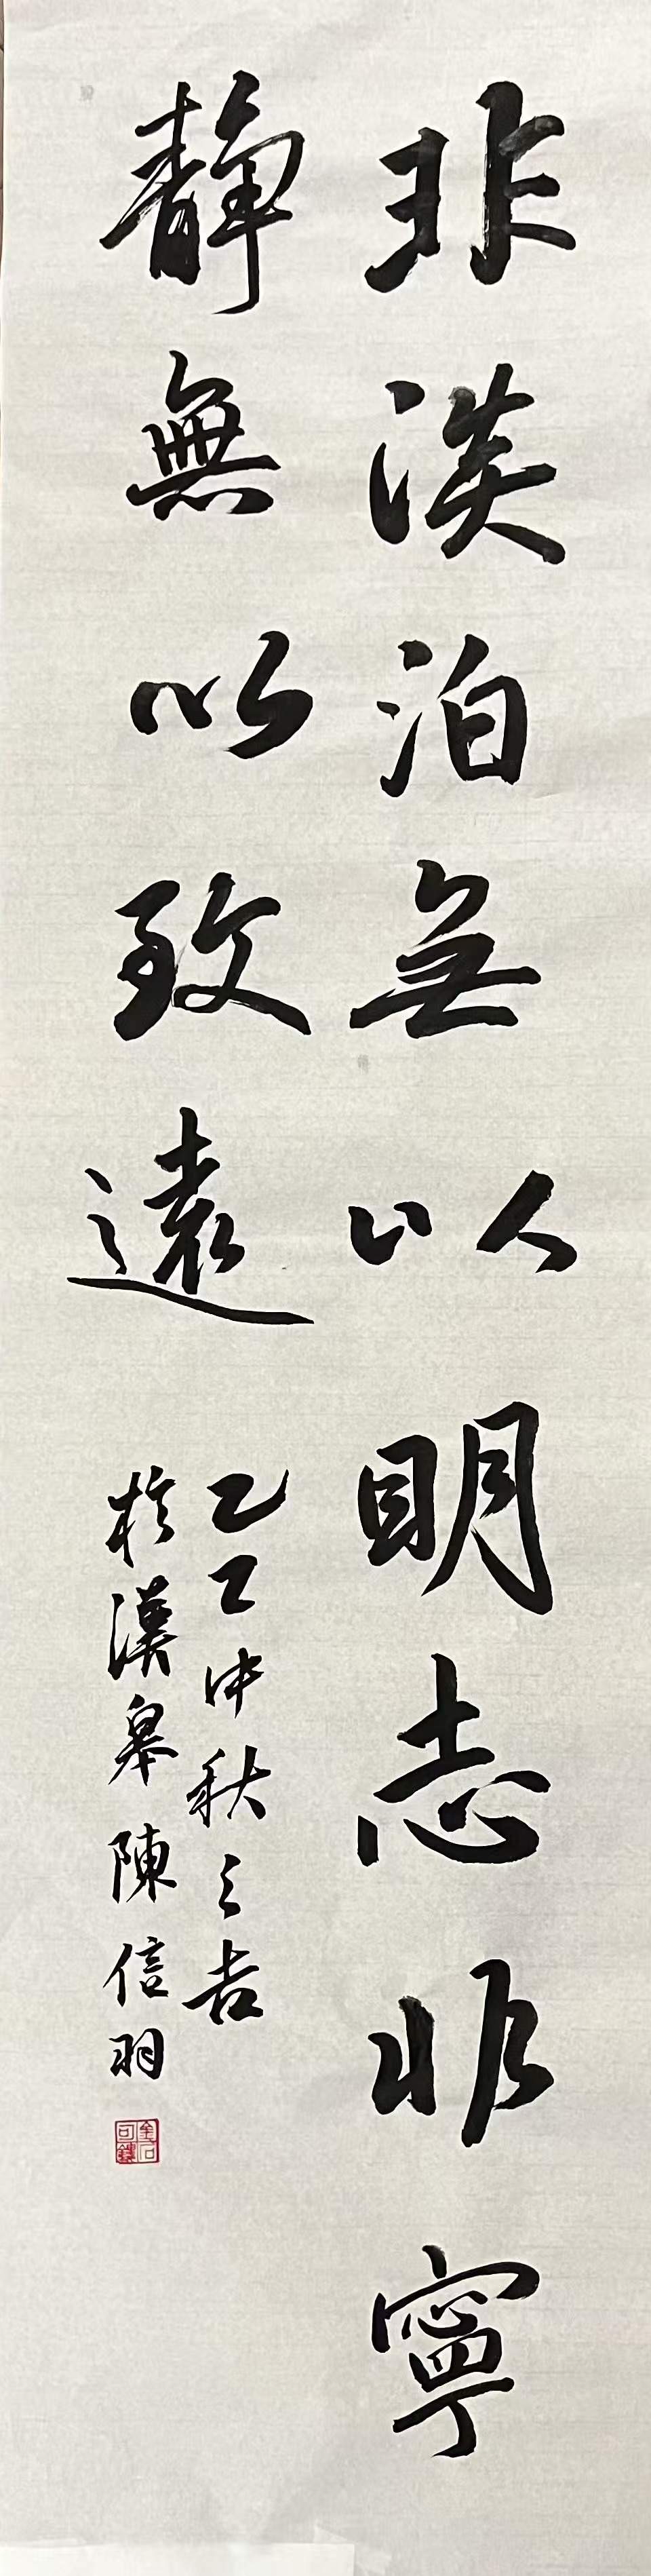 非淡泊無以明志非寧
靜無以致遠
乙巳中秋之吉
於漢皋陳信羽
金石可鏤